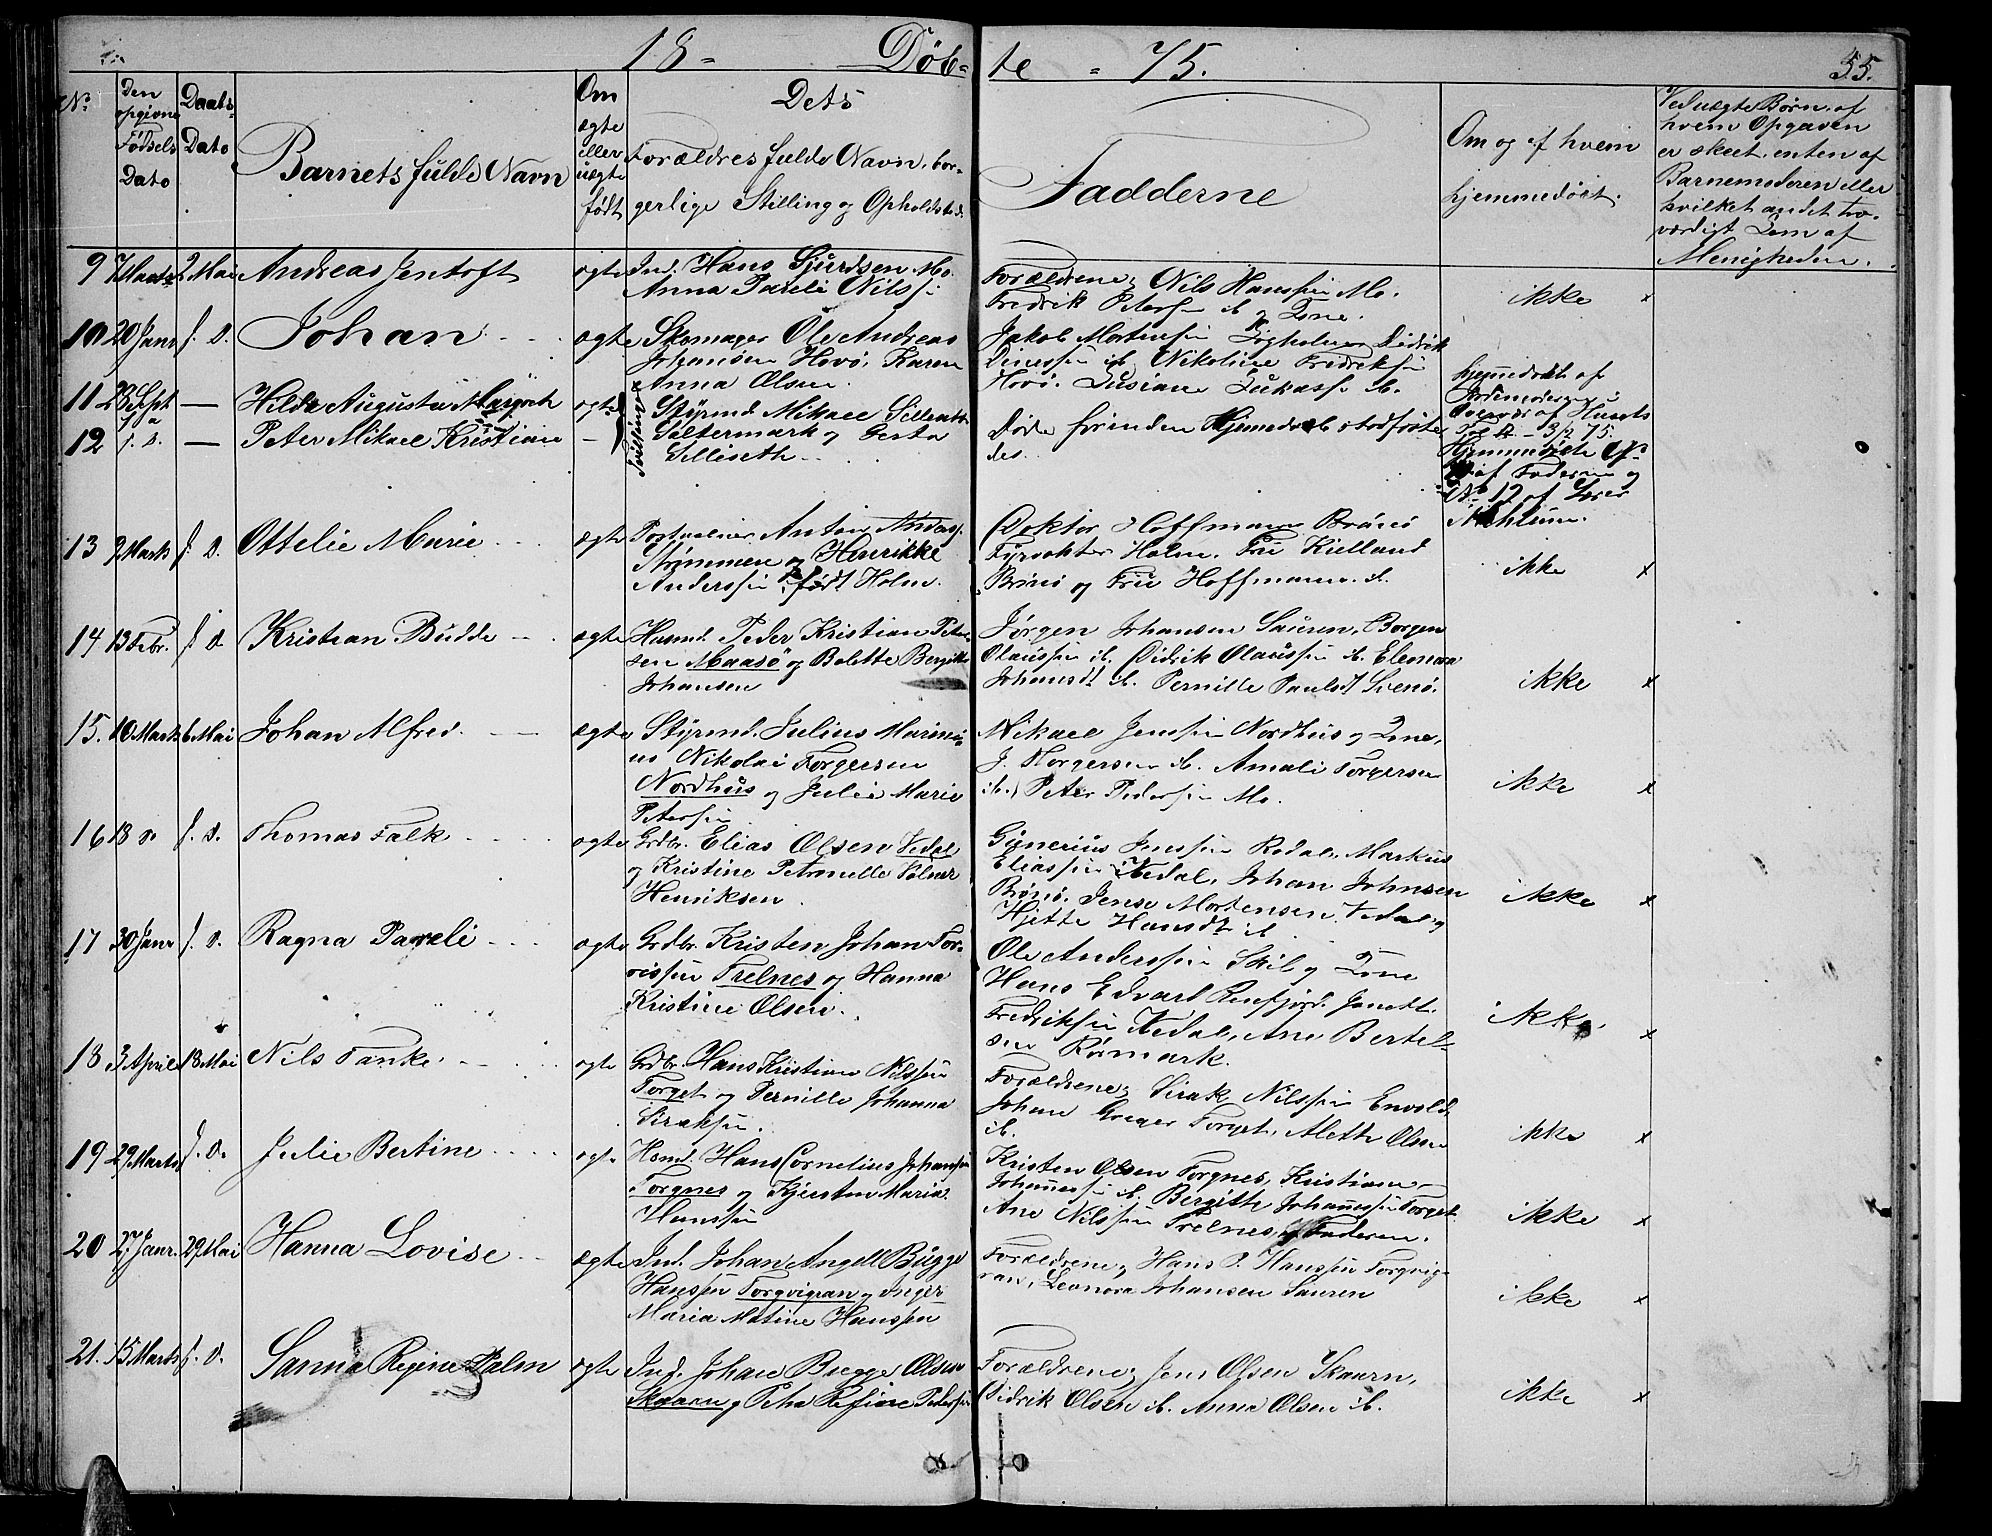 18- Døb- te - 75. 55.
No. Den opgivne Fødsels Dato
Daabs- Dato
Barnets fulde Navn
Om ægte eller uægte født
Dets Forældres fulde Navn, bor-
gerlige Stilling og Opholdsted.
Fadderne
Om og af hvem
hjemmedøbt.
Ved uægte Børn, af
hvem Opgaven
er skeet, enten af
Barnemoderen eller
hvilket andet tro-
værdigt Lem af
Menigheden.
9 7 Marts 2 Mai Andreas Jentoft ægte Ind. Hans Sjurdsen Mo.
Anna Pareli Nilss
Forældrene, Nils Hanssen Mo.
Fredrik Peterssen ib. og Kone. ikke x
10 20 Janr s. D. Johan ægte Skomager Ole Andreas
Johansen Hovø, Karen
Anna Olsen.
Jakob Mortenssen Didrik
Dinessen ib. Nikoline Fredriksen
Hovø. Lusiane Lukass ib.
11 28 Sept — Hilda Augusta ægte Styrmd. Mikael
12 s. D. — Peter Mikael Kristian — Søltermark og
Tvillinger
Døde forinden Hjemmedaab stadfæste
des.
hjemmedøbt af
3/2 75.
Hjemmedøbte No
11 af Faderen og
No 12 af Lærer
13 2 Marts s. D. Ottelie Marie ægte Anton Andrs.
Strømmen og Henrikke
Anderssen født Holm.
Doktor Hoffmann Brønø
Fyrvokter Holm. Fru Kielland
Brønø og Frü Hoffmann ib. ikke x
14 13 Febr. s. D Kristian Budde ægte Husmd. Peder Kristian Peter-
sen Maasø og Bolette Bergitte
Johansen
Jørgen Johansen Sauren, Borgen
Olaussen ib. Didrik Olaussen ib. Elenora
Johansdt ib. Pernille Paulsdt Svenø. ikke x
15. 10 Marts 6 Mai Johan Alfred ægte Styrmd. Julius Marini-
us Nikolai Torgersen
Nordhus og Julie Marie
Petersen
Mikael Jenssen Nordhus og Kone,
J. Torgersen ib. Amali Torgersen
ib. Peter Pederssen Mo. ikke x
16 18 D. s. D. Thomas Falk ægte Grdbr. Elias Olsen Vedal
og Kristine Petronelle Volner
Henriksen.
Günerius Jenssen Rodal, Markus
Eliassen Vedal, Johan Johnsen
Brønø. Jense Mortensen Vedal og
Hjette Hansdt ib. ikke x
17 30 Janr s. D. Ragna Pareli ægte Grdbr. Kristen Johan Tor-
rissen Trelnes og Hanna
Kristine Olsen.
Ole Anderssen Skil og Kone
Hans Edvart Rensfjord. Janett
Fredriksen Vedal, Ane Bertel-
sen Rørmark. ikke x
18 3 April 18 Mai Nils Tanke ægte Grdbr. Hans Kristian Nilssen
Torget og Pernille Johanna
Siraksen.
Forældrene, Sirak Nilssen Envold,
Johan Greger Torget, Alette Olsen
ib. ikke x
19 29 Marts s. D. Julie Bertine ægte Husmd. Hans Cornelius Johansen
Torgnes og Kjersten Maria
Hanssen
Kristen Olsen Torgnes, Kristiane
Johannessen ib. Bergitte Johannessen Torget.
Ane Nilssen Trelnes, og Faderen. ikke x
20 27 Janr. 29 Mai Hanna Lovise ægte Ind. Johan Angell Bugge
Hanssen Torgvigran og Inger
Maria Matine Hanssen
Forældrene, Hans P. Hanssen Torgvig-
ran, Leonora Johansen Sauren ikke x
21. 15 Marts s. D. Sanna Regine Palm ægte Ind. Johan Bugge Olsen
Skaarn og Petra Refine Pedersen
Forældrene, Jens Olsen Skaarn,
Didrik Olsen ib. Anna Olsen ib. ikke x